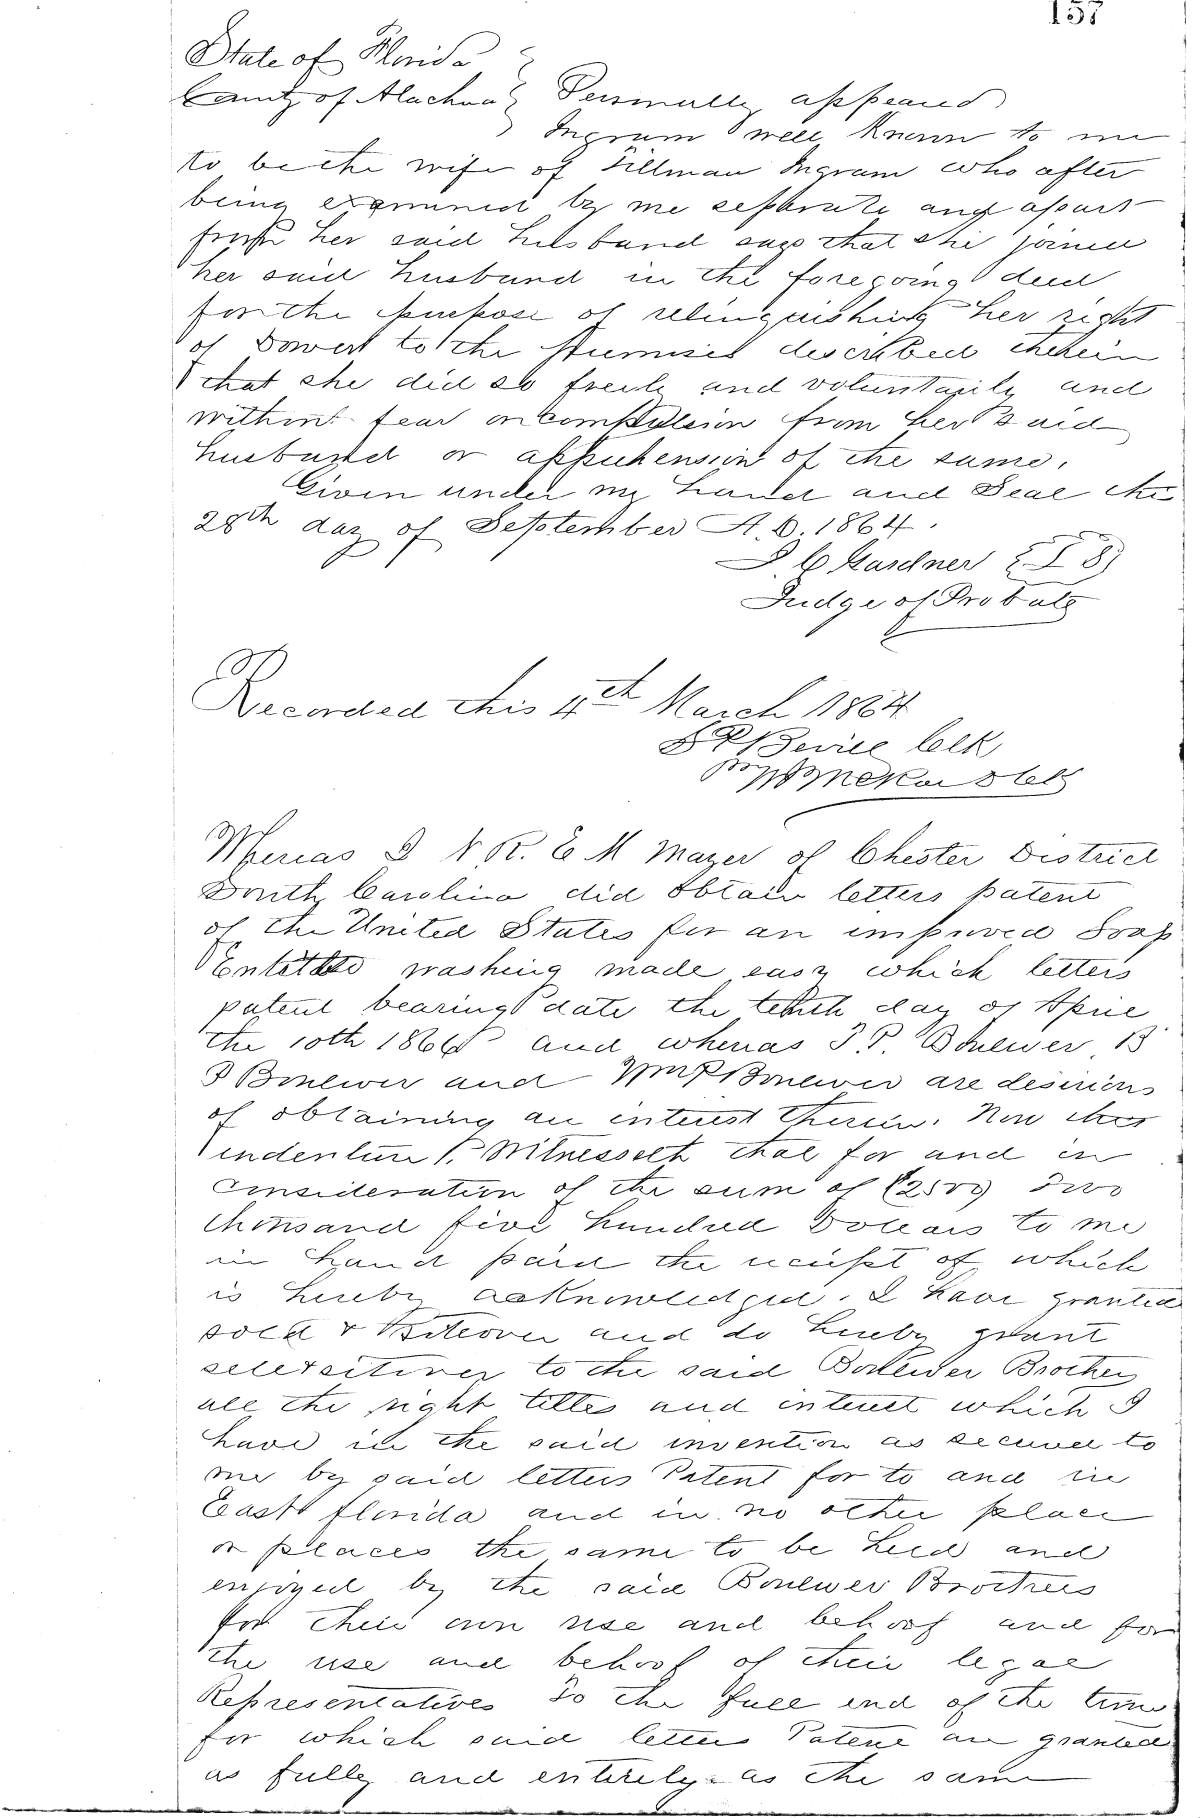 157
State of Florida
County of Alachua Personally appeared
Ingram well Known to me
to be the wife of Tillman Ingram who after
being examined by me separate and apart
from her said husband says that she joined
her said husband in the foregoing deed
for the purpose of relinquishing her right
of Dower to the Premises described therein
that she did so freely and voluntarily and
without fear or compulsion from her said
husband or apprehension of the same.
Given under my hand and Seal this
28th day of September A.D. 1864.
Gardner {L S}
Judge of Probate
Recorded this 4th March 1864
Bevill Clk
Whereas I R. E M Mazer of Chester District
South Carolina did obtain letters patent
of the United States for an improved Soap
Entitled washing made easy which letters
patent bearing date the tenth day of April
the 10th 1866 and whereas
and are desirious
of obtaining an interest therein. Now this
indenture Witnesseth that for and in
consideration of the sum of (2500) Two
thousand five hundred Dollars to me
in hand paid the receipt of which
is hereby acknowledged. I have granted
sold & and do hereby grant
to the said Brothers
all the right title and interest which I
have in the said invention as secured to
me by said letters Patent for to and in
East florida and in no other place
or places the same to be held and
enjoyed by the said Brothers
for their own use and behoof and for
the use and behoof of their legal
Representatives To the full end of the time
for which said letters Patent are granted
as fully and entirely as the same